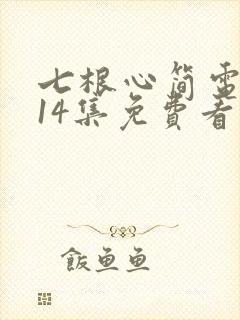 七根心简电
14集免费看
飯魚魚